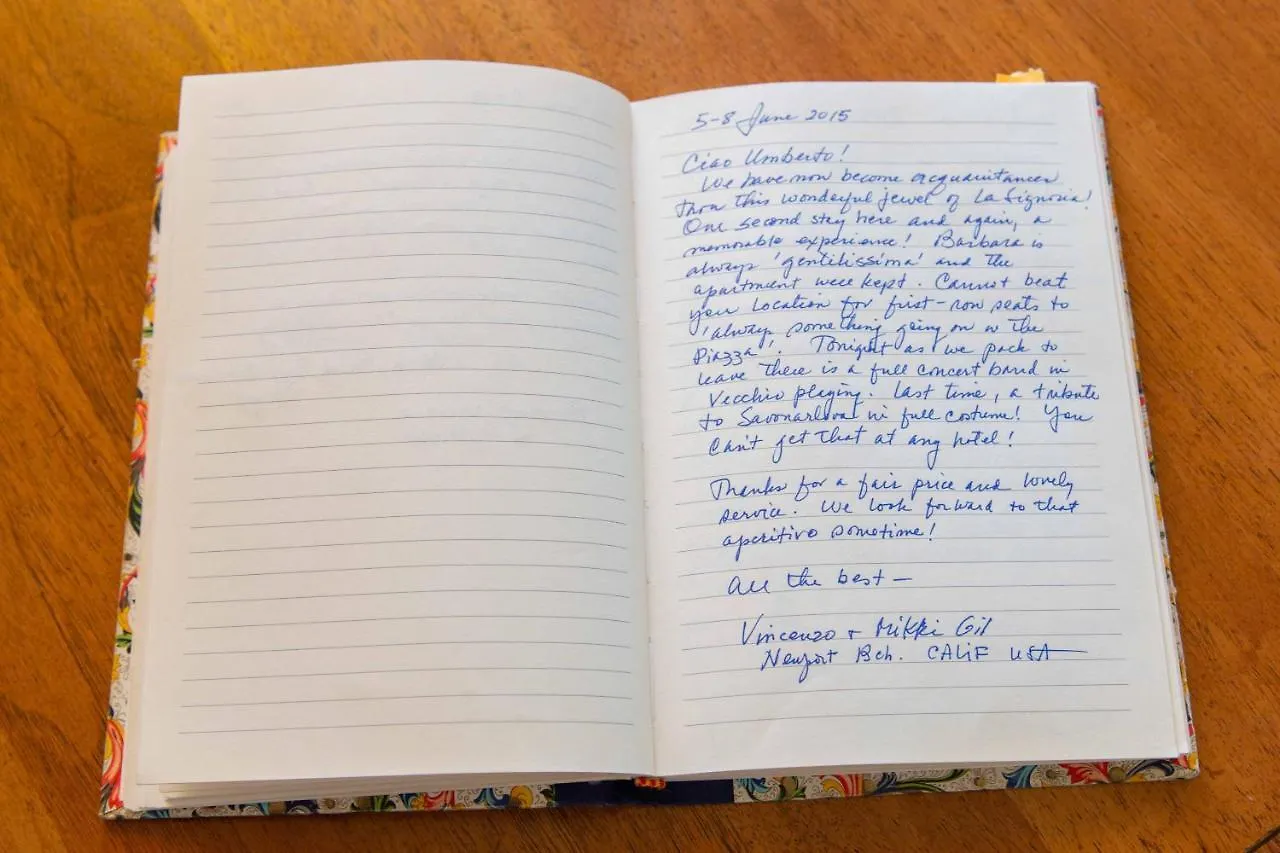 5-8 June 2015
Ciao Umberto!
We have now become acquaintances
thru this wonderful jewel of La Signoria!
Our second stay here and again, a
memorable experience! Barbara is
always 'gentilissima' and the
apartment well kept. Cannot beat
your location for first-row seats to
'always something going on in the
Piazza'. Tonight as we pack to
leave there is a full concert band in
Vecchio playing. Last time, a tribute
to in full costume! You
can't get that at any hotel!
Thanks for a fair price and lovely
service. We look forward to that
aperitivo sometime!
All the best—
Vincenzo + Mikki Gil
Newport Bch. CALIF USA